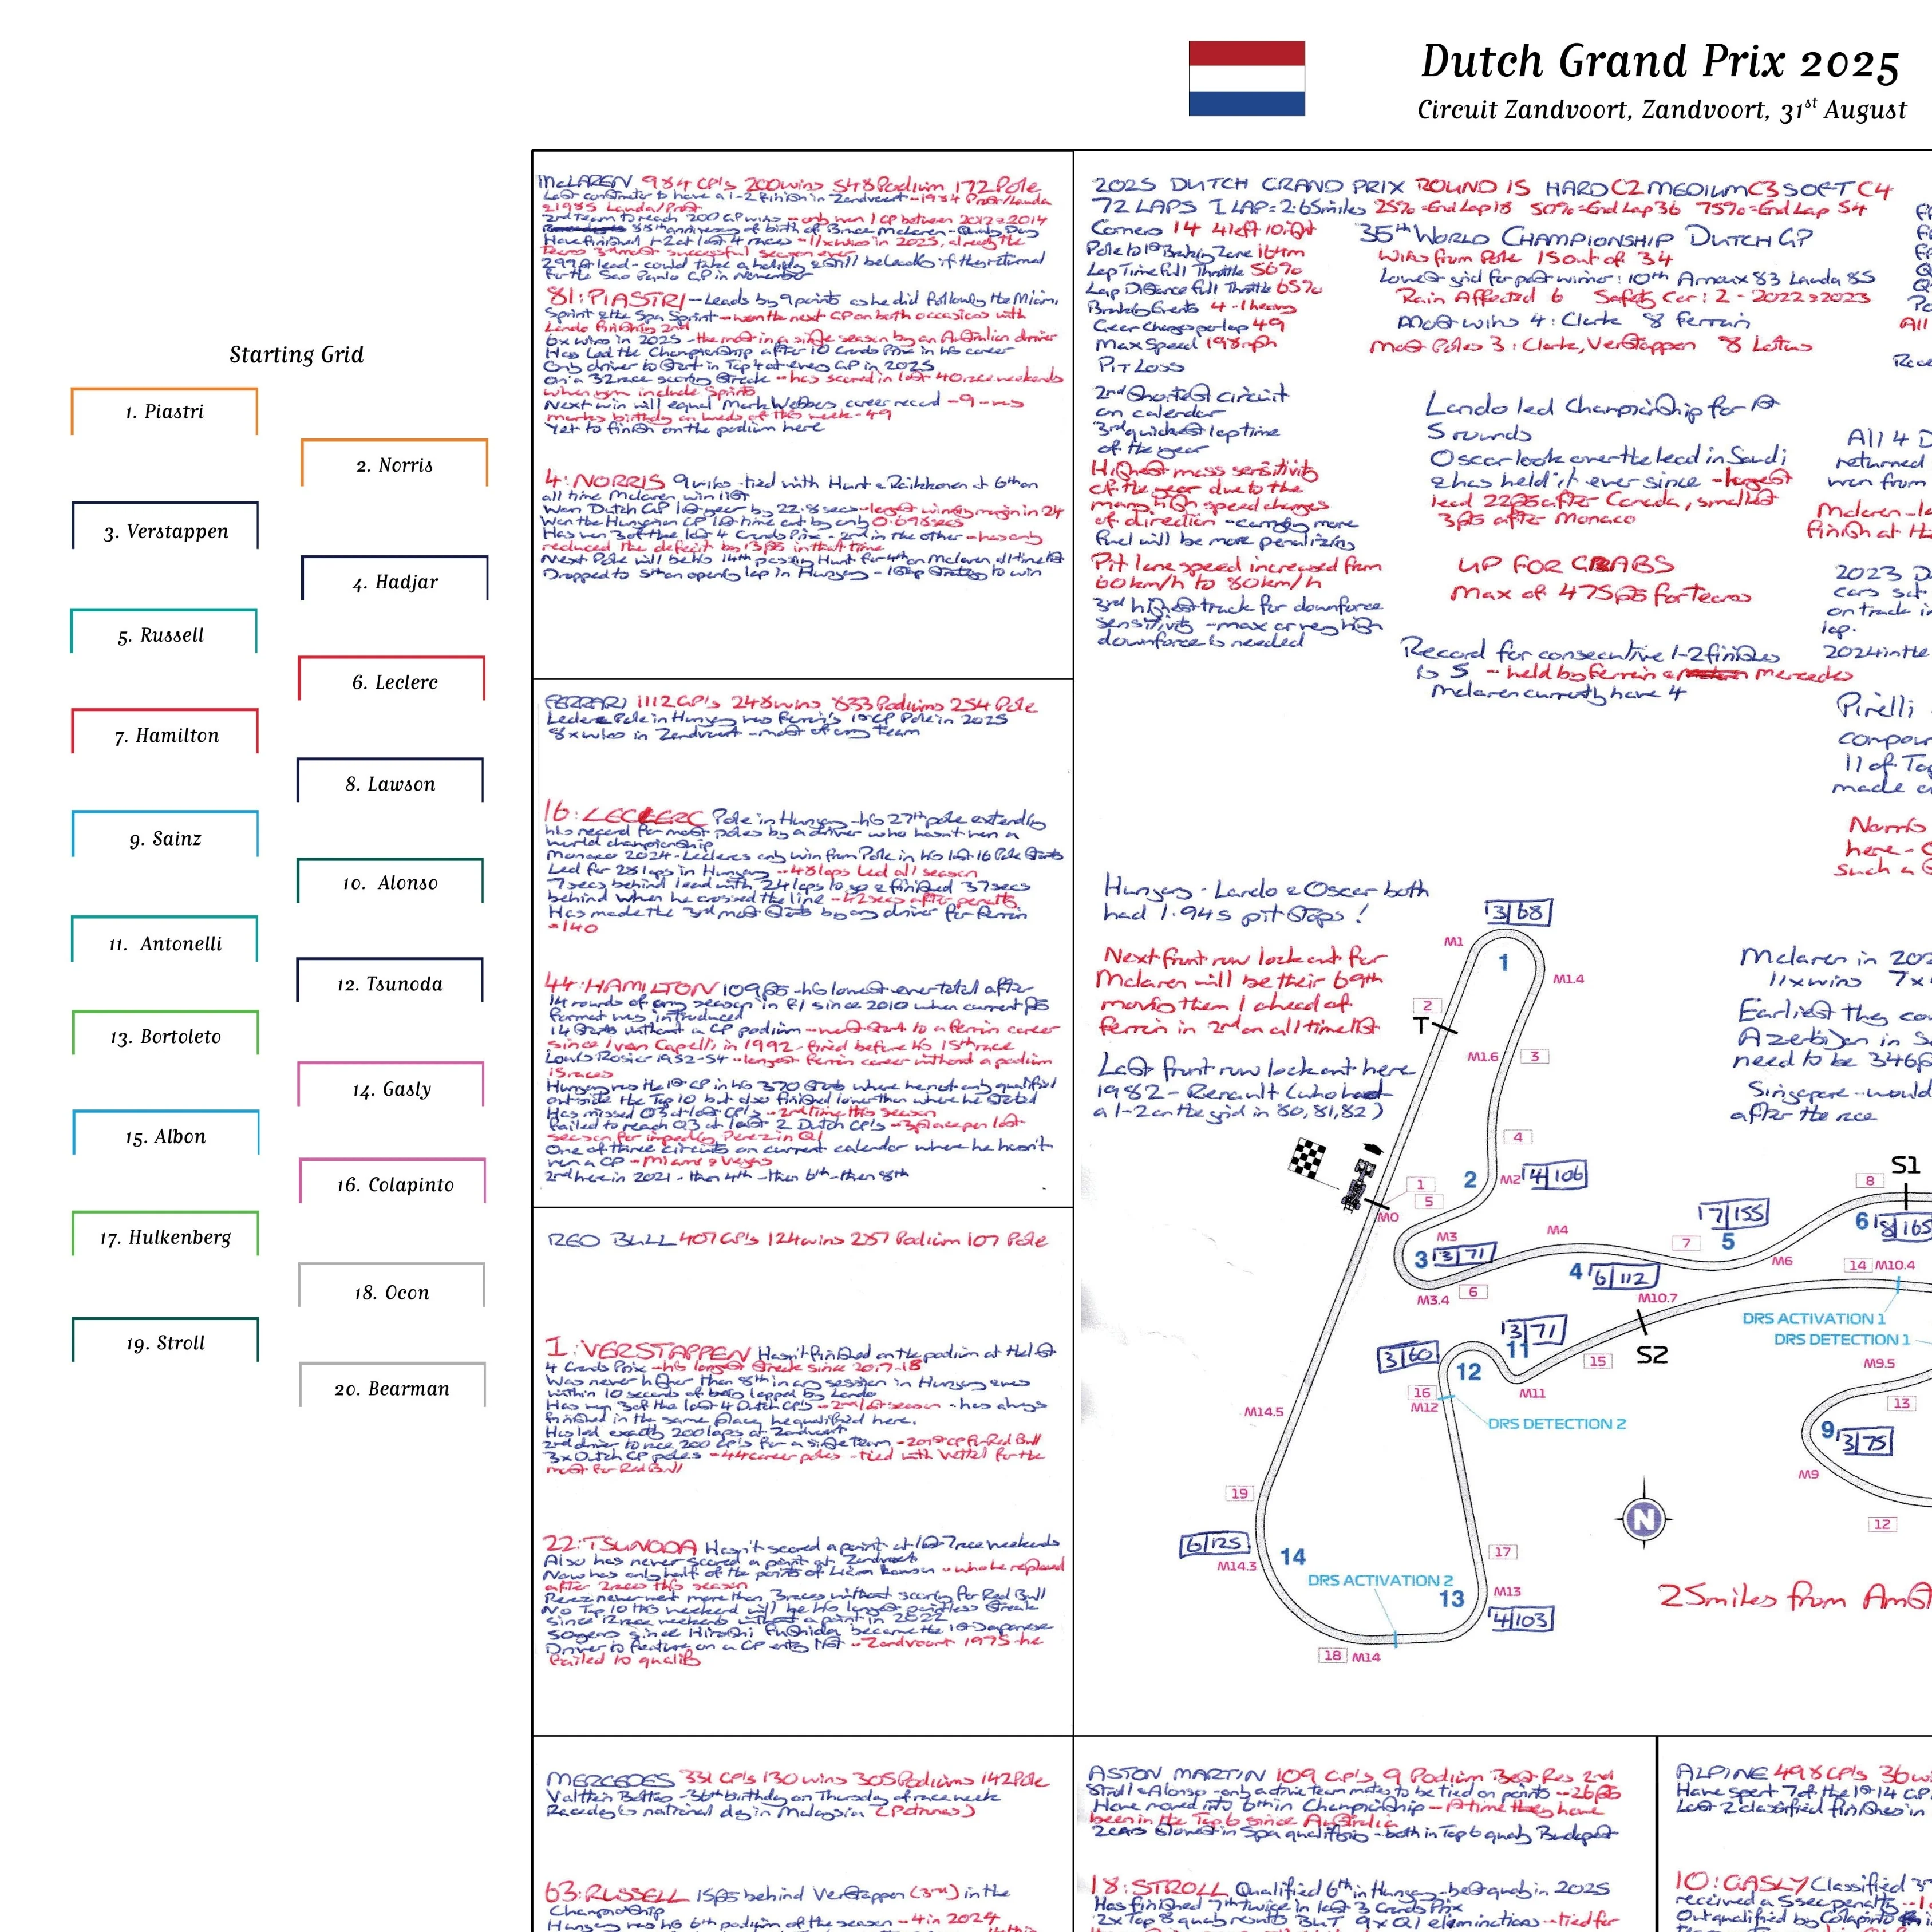 Dutch Grand Prix 2025
Circuit Zandvoort, Zandvoort, 31st August
Starting Grid
1. Piastri
2. Norris
3. Verstappen
4. Hadjar
5. Russell
6. Leclerc
7. Hamilton
8. Lawson
9. Sainz
10. Alonso
11. Antonelli
12. Tsunoda
13. Bortoleto
14. Gasly
15. Albon
16. Colapinto
17. Hulkenberg
18. Ocon
19. Stroll
20. Bearman
McLAREN 984 GP's 200 wins 548 Podium 172 Pole
Last constructor to have a 1-2 finish in Zandvoort - 1984 Prost/Lauda
& 1985 Lauda/Prost
2nd Team to reach 200 GP wins - only won 1 GP between 2012 & 2014
88th anniversary of birth of Bruce McLaren - Qualy Day
Have finished 1-2 at last 4 races - 11 x wins in 2025, already the
teams 3rd most successful season ever
299pt lead - could take a holiday & still be leading if they returned
for the Sao Paulo GP in November
81: PIASTRI - Leads by 9 points as he did following the Miami
Sprint & the Spa Sprint - won the next GP on both occasions with
Lando finishing 2nd
6x wins in 2025 - the most in a single season by an Australian driver
Has led the Championship after 10 Grands Prix in his career
Only driver to start in Top 4 at every GP in 2025
On a 32 race scoring streak - has scored in last 40 race weekends
when you include Sprints
Next win will equal Mark Webbers career record - 9 - who
marks birthday on Weds of this week - 49
Yet to finish on the podium here
4: NORRIS 9 wins - tied with Hunt & Raikkonen at 6th on
all time McLaren win list
Won Dutch GP last year by 22.8 secs - largest winning margin in 24
Won the Hungarian GP last time out by only 0.698 secs
Has won 3 of the last 4 Grands Prix - 2nd in the other - has only
reduced the deficit by 13pts in that time
Next Pole will be his 14th passing Hunt for 4th on McLaren all time list
Dropped to 5th on opening lap in Hungary - 1 stop strategy to win
FERRARI 1112 GP's 248 wins 833 Podiums 254 Pole
Leclercs Pole in Hungary was Ferrari's 1st GP Pole in 2025
8 x wins in Zandvoort - most of any team
16: LECLERC Pole in Hungary - his 27th pole extending
his record for most poles by a driver who hasn't won a
world championship
Monaco 2024 - Leclercs only win from Pole in his last 16 Pole Starts
Led for 28 laps in Hungary - 48 laps led all season
7 secs behind lead with 24 laps to go & finished 37 secs
behind when he crossed the line - 42 secs after penalty
Has made the 3rd most starts by any driver for Ferrari
- 140
44: HAMILTON 109pts - his lowest ever total after
14 rounds of any season in F1 since 2010 when current pts
format was introduced
14 starts without a GP podium - worst start to a Ferrari career
since Ivan Capelli in 1992 - fired before his 15th race
Louis Rosier 1952-54 - longest Ferrari career without a podium
15 races
Hungary was the 1st GP in his 370 starts where he not only qualified
outside the Top 10 but also finished lower than where he started
Has missed Q3 at last GP's - 2nd time this season
Failed to reach Q3 at last 2 Dutch GP's - 3 place pen last
season for impeding Perez in Q1
One of three circuits on current calendar where he hasn't
won a GP - Miami & Vegas
2nd here in 2021 - then 4th - then 6th - then 8th
RED BULL 407 GP's 124 wins 287 Podium 107 Pole
1: VERSTAPPEN Hasn't finished on the podium at the last
4 Grands Prix - his longest streak since 2017-18
Was never higher than 8th in any session in Hungary & was
within 10 seconds of being lapped by Lando
Has won 3 of the last 4 Dutch GP's - 2nd last season - has always
finished in the same place he qualified here.
Has led exactly 200 laps at Zandvoort
2nd driver to race 200 GP's for a single team - 201st GP for Red Bull
3x Dutch GP poles - 44 career poles - tied with Vettel for the
most for Red Bull
22: TSUNODA Hasn't scored a point at last 7 race weekends
Also has never scored a point at Zandvoort
Now has only half of the points of Liam Lawson - who he replaced
after 2 races this season
Perez never went more than 3 races without scoring for Red Bull
No Top 10 this weekend will be his longest pointless streak
since 12 race weekends without a point in 2022
50 years since Hiroshi Fushida became the 1st Japanese
Driver to feature on a GP entry list - Zandvoort 1975 - he
failed to qualify
MERCEDES 331 GP's 130 wins 305 Podiums 142 Pole
Valtteri Bottas - 36th birthday on Thursday of race week
Raceday is national day in Malaysia (Petronas)
63: RUSSELL 15pts behind Verstappen (3rd) in the
Championship
Hungary was his 6th podium of the season - 4 in 2024
2025 DUTCH GRAND PRIX ROUND 15 HARD C2 MEDIUM C3 SOFT C4
72 LAPS 1 LAP = 2.65 miles 25% = End Lap 18 50% = End Lap 36 75% = End Lap 54
Corners 14 4 left 10 right
Pole to 1st Braking Zone 164m
Lap Time Full Throttle 56%
Lap Distance Full Throttle 65%
Braking Events 4 - 1 heavy
Gear Changes per lap 49
Max Speed 198mph
Pit Loss
35th WORLD CHAMPIONSHIP DUTCH GP
Wins from Pole 15 out of 34
Lowest grid for past winner: 10th Arnoux 83 Lauda 85
Rain Affected 6 Safety Car: 2 - 2022 & 2023
Most wins 4: Clark 8 Ferrari
Most Poles 3: Clark, Verstappen 8 Lotus
2nd shortest circuit
on calendar
3rd quickest lap time
of the year
Highest mass sensitivity
of the year due to the
many high speed changes
of direction - carrying more
fuel will be more penalizing
Pit lane speed increased from
60km/h to 80km/h
3rd highest track for downforce
sensitivity - max or very high
downforce is needed
Lando led Championship for 1st
5 rounds
Oscar took over the lead in Saudi
& has held it ever since - largest
lead 22pts after Canada, smallest
3pts after Monaco
UP FOR GRABS
Max of 475pts for teams
Record for consecutive 1-2 finishes
is 5 - held by Ferrari & Mercedes
McLaren currently have 4
All 4 D
returned
won from
McLaren - la
finish at H
2023 D
cars set
on track in
lap.
2024 in the
Pirelli
compoun
11 of To
made
Norris
here -
such a
Hungary - Lando & Oscar both
had 1.94s pit stops!
Next front row lock out for
McLaren will be their 69th
moving them 1 ahead of
Ferrari in 2nd on all time list
Last front row lockout here
1982 - Renault (who had
a 1-2 on the grid in 80, 81, 82)
McLaren in 202
11x wins 7x
Earliest they co
Azerbijan in S
need to be 346p
Singapore - would
after the race
3/68
M1
1
M1.4
2
T
M1.6
3
4
2
M2
4/106
1
5
M0
M3
3
3/71
M3.4
6
M4
4
6/112
7/155
7
5
M6
8
S1
6
8/165
14
M10.4
M10.7
DRS ACTIVATION 1
DRS DETECTION 1
M9.5
S2
3/71
11
15
M11
3/60
12
16
M12
DRS DETECTION 2
M14.5
13
9
3/75
M9
12
N
19
6/125
M14.3
14
DRS ACTIVATION 2
17
M13
13
4/103
18
M14
25miles from Amst
ASTON MARTIN 109 GP's 9 Podium Best Res 2nd
Stroll & Alonso - only active team mates to be tied on points - 26pts
Have moved into 6th in Championship - 1st time they have
been in the Top 6 since Australia
2 cars slowest in Spa qualifying - both in Top 6 qualy Budapest
18: STROLL Qualified 6th in Hungary - best qualy in 2025
Has finished 7th twice in last 3 Grands Prix
2x Top 8 qualy results BUT 9x Q1 eliminations - tied for
ALPINE 498 GP's 36 wi
Have spent 7 of the 1st 14 GP
Last 2 classified finishes in
10: GASLY Classified
received a 5 sec penalty
Outqualified by Colapinto